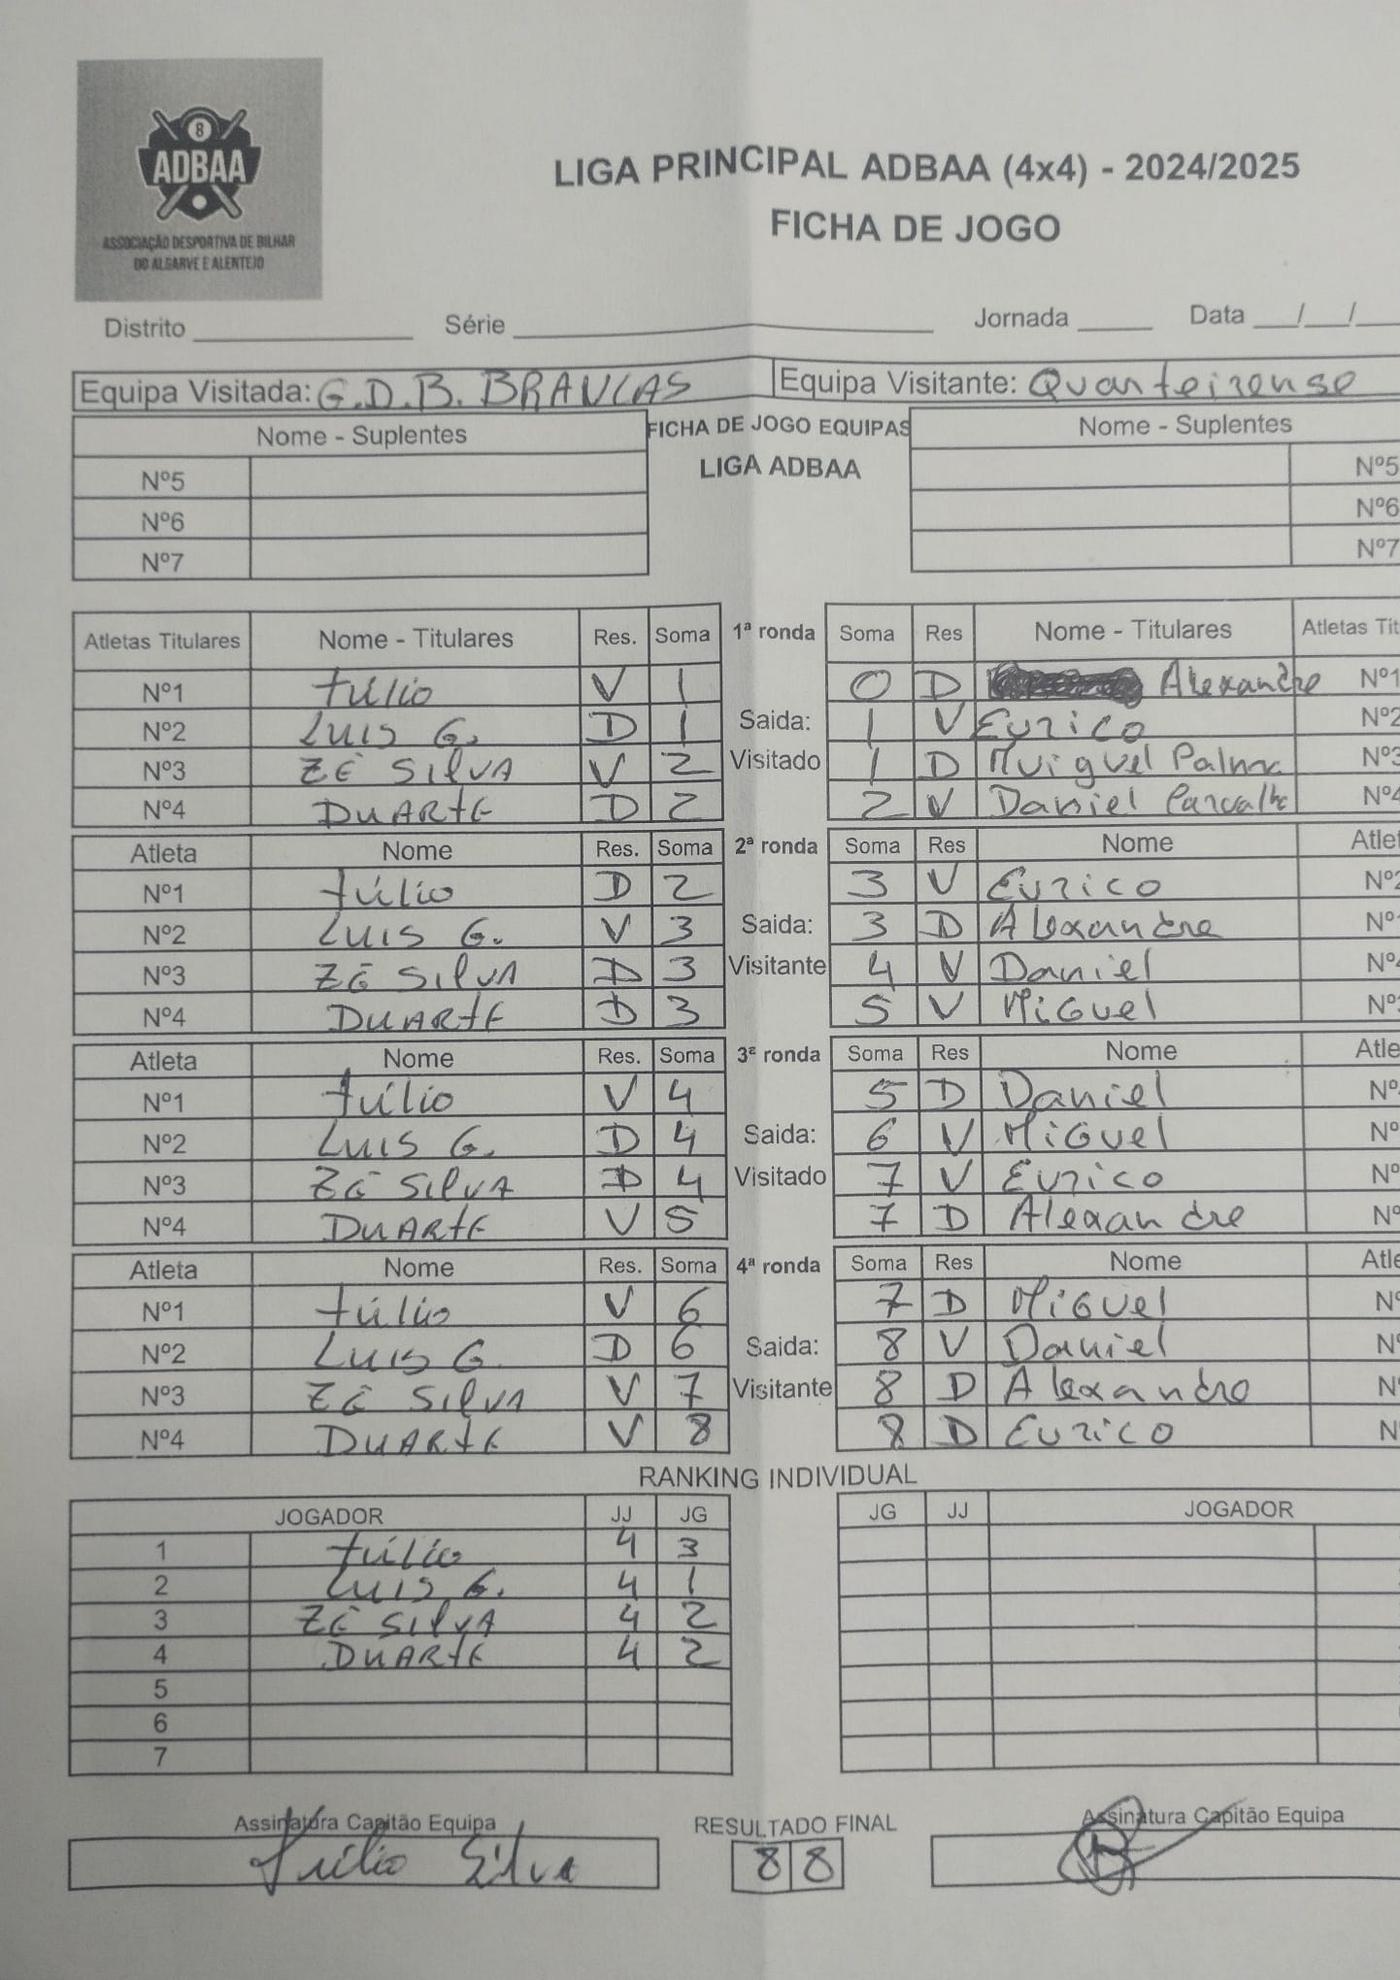 8
ADBAA
ASSOCIAÇÃO DESPORTIVA DE BILHAR
DO ALGARVE E ALENTEJO
LIGA PRINCIPAL ADBAA (4x4) - 2024/2025
FICHA DE JOGO
Distrito Série Jornada Data / /
Equipa Visitada: G.D.B. BRAVCAS Equipa Visitante: Quarteirense
Nome - Suplentes FICHA DE JOGO EQUIPAS Nome - Suplentes
LIGA ADBAA
Nº5 Nº5
Nº6 Nº6
Nº7 Nº7
Atletas Titulares Nome - Titulares Res. Soma 1ª ronda Soma Res Nome - Titulares Atletas Tit
Nº1 túlio V 1 0 D Alexandre Nº1
Nº2 LUIS G. D 1 Saida: 1 V Eurico Nº2
Nº3 ZÉ SilVA V 2 Visitado 1 D Muiguel Palma Nº3
Nº4 DUARTE D 2 2 V Daniel Carvalho Nº4
Atleta Nome Res. Soma 2ª ronda Soma Res Nome Atlet
Nº1 túlio D 2 3 V Eurico Nº2
Nº2 LUIS G. V 3 Saida: 3 D Alexandre Nº
Nº3 ZÉ SilVA D 3 Visitante 4 V Daniel Nº4
Nº4 DUARTE D 3 5 V MiGuel Nº
Atleta Nome Res. Soma 3ª ronda Soma Res Nome Atle
Nº1 túlio V 4 5 D Daniel Nº
Nº2 LUIS G. D 4 Saida: 6 V MiGuel Nº
Nº3 ZÉ SilVA D 4 Visitado 7 V Eurico Nº
Nº4 DUARTE V 5 7 D Alexandre Nº
Atleta Nome Res. Soma 4ª ronda Soma Res Nome Atle
Nº1 túlio V 6 7 D MiGuel Nº
Nº2 LUIS G D 6 Saida: 8 V Daniel Nº
Nº3 ZÉ SilVA V 7 Visitante 8 D Alexandre Nº
Nº4 DUARTE V 8 8 D Eurico N
RANKING INDIVIDUAL
JOGADOR JJ JG JG JJ JOGADOR
1 túlio 4 3
2 LUIS G. 4 1
3 ZÉ SilVA 4 2
4 DUARTE 4 2
5
6
7
Assinatura Capitão Equipa RESULTADO FINAL Assinatura Capitão Equipa
Túlio Silva 8 8